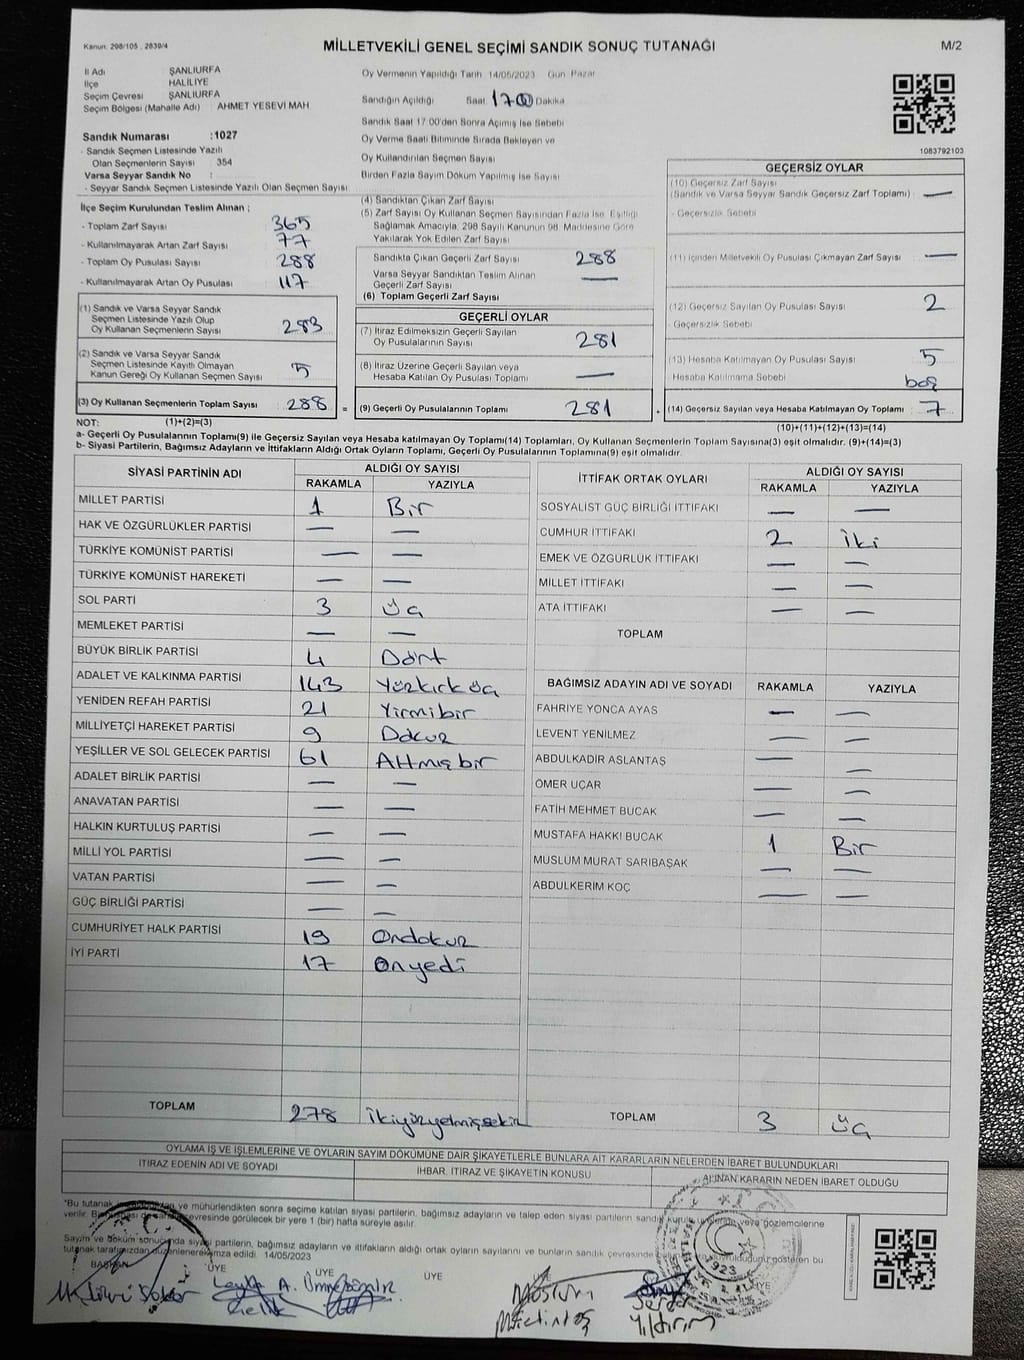 Kanun. 298/105 , 2839/4
MİLLETVEKİLİ GENEL SEÇİMİ SANDIK SONUÇ TUTANAĞI
M/2
İl Adı ŞANLIURFA
İlçe HALİLİYE
Seçim Çevresi ŞANLIURFA
Seçim Bölgesi (Mahalle Adı) : AHMET YESEVİ MAH
Sandık Numarası :1027
- Sandık Seçmen Listesinde Yazılı
Olan Seçmenlerin Sayısı : 354
Varsa Seyyar Sandık No :
- Seyyar Sandık Seçmen Listesinde Yazılı Olan Seçmen Sayısı:
Oy Vermenin Yapıldığı Tarih 14/05/2023 Gün Pazar
Sandığın Açıldığı Saat 17 00 Dakika
Sandık Saat 17:00'den Sonra Açımış İse Sebebi
Oy Verme Saati Bitiminde Sırada Bekleyen ve
Oy Kullandırılan Seçmen Sayısı
Birden Fazla Sayım Döküm Yapılmış İse Sayısı
1083792103
İlçe Seçim Kurulundan Teslim Alınan ;
- Toplam Zarf Sayısı 365
- Kullanılmayarak Artan Zarf Sayısı 77
- Toplam Oy Pusulası Sayısı 288
- Kullanılmayarak Artan Oy Pusulası 117
(1) Sandık ve Varsa Seyyar Sandık
Seçmen Listesinde Yazılı Olup
Oy Kullanan Seçmenlerin Sayısı 283
(2) Sandık ve Varsa Seyyar Sandık
Seçmen Listesinde Kayıtlı Olmayan
Kanun Gereği Oy Kullanan Seçmen Sayısı 5
(3) Oy Kullanan Seçmenlerin Toplam Sayısı 288 =
(4) Sandıktan Çıkan Zarf Sayısı
(5) Zarf Sayısı Oy Kullanan Seçmen Sayısından Fazla İse, Eşitliği
Sağlamak Amacıyla, 298 Sayılı Kanunun 98. Maddesine Göre
Yakılarak Yok Edilen Zarf Sayısı
Sandıkta Çıkan Geçerli Zarf Sayısı 288
Varsa Seyyar Sandıktan Teslim Alınan
Geçerli Zarf Sayısı —
(6) Toplam Geçerli Zarf Sayısı
GEÇERLİ OYLAR
(7) İtiraz Edilmeksizin Geçerli Sayılan
Oy Pusulalarının Sayısı 281
(8) İtiraz Üzerine Geçerli Sayılan veya
Hesaba Katılan Oy Pusulası Toplamı —
(9) Geçerli Oy Pusulalarının Toplamı 281
GEÇERSİZ OYLAR
(10) Geçersiz Zarf Sayısı
(Sandık ve Varsa Seyyar Sandık Geçersiz Zarf Toplamı) —
- Geçersizlik Sebebi
(11) İçinden Milletvekili Oy Pusulası Çıkmayan Zarf Sayısı —
(12) Geçersiz Sayılan Oy Pusulası Sayısı 2
- Geçersizlik Sebebi
(13) Hesaba Katılmayan Oy Pusulası Sayısı 5
Hesaba Katılmama Sebebi boş
(14) Geçersiz Sayılan veya Hesaba Katılmayan Oy Toplamı 7
NOT: (1)+(2)=(3)
(10)+(11)+(12)+(13)=(14)
a- Geçerli Oy Pusulalarının Toplamı(9) ile Geçersiz Sayılan veya Hesaba katılmayan Oy Toplamı(14) Toplamları, Oy Kullanan Seçmenlerin Toplam Sayısına(3) eşit olmalıdır. (9)+(14)=(3)
b- Siyasi Partilerin, Bağımsız Adayların ve İttifakların Aldığı Ortak Oyların Toplamı, Geçerli Oy Pusulalarının Toplamına(9) eşit olmalıdır.
SİYASİ PARTİNİN ADI ALDIĞI OY SAYISI
RAKAMLA YAZIYLA
MİLLET PARTİSİ 1 Bir
HAK VE ÖZGÜRLÜKLER PARTİSİ — —
TÜRKİYE KOMÜNİST PARTİSİ — —
TÜRKİYE KOMÜNİST HAREKETİ — —
SOL PARTİ 3 Üç
MEMLEKET PARTİSİ — —
BÜYÜK BİRLİK PARTİSİ 4 Dört
ADALET VE KALKINMA PARTİSİ 143 Yüzkırküç
YENİDEN REFAH PARTİSİ 21 Yirmibir
MİLLİYETÇİ HAREKET PARTİSİ 9 Dokuz
YEŞİLLER VE SOL GELECEK PARTİSİ 61 Altmışbir
ADALET BİRLİK PARTİSİ — —
ANAVATAN PARTİSİ — —
HALKIN KURTULUŞ PARTİSİ — —
MİLLİ YOL PARTİSİ — —
VATAN PARTİSİ — —
GÜÇ BİRLİĞİ PARTİSİ — —
CUMHURİYET HALK PARTİSİ 19 Ondokuz
İYİ PARTİ 17 Onyedi
TOPLAM 278 İkiyüzyetmişsekiz
İTTİFAK ORTAK OYLARI ALDIĞI OY SAYISI
RAKAMLA YAZIYLA
SOSYALİST GÜÇ BİRLİĞİ İTTİFAKI — —
CUMHUR İTTİFAKI 2 İki
EMEK VE ÖZGÜRLÜK İTTİFAKI — —
MİLLET İTTİFAKI — —
ATA İTTİFAKI — —
TOPLAM
BAĞIMSIZ ADAYIN ADI VE SOYADI RAKAMLA YAZIYLA
FAHRİYE YONCA AYAS — —
LEVENT YENİLMEZ — —
ABDULKADİR ASLANTAŞ — —
ÖMER UÇAR — —
FATİH MEHMET BUCAK — —
MUSTAFA HAKKI BUCAK 1 Bir
MÜSLÜM MURAT SARIBAŞAK — —
ABDULKERİM KOÇ — —
TOPLAM 3 Üç
OYLAMA İŞ VE İŞLEMLERİNE VE OYLARIN SAYIM DÖKÜMÜNE DAİR ŞİKAYETLERLE BUNLARA AİT KARARLARIN NELERDEN İBARET BULUNDUKLARI
İTİRAZ EDENİN ADI VE SOYADI İHBAR, İTİRAZ VE ŞİKAYETİN KONUSU ALINAN KARARIN NEDEN İBARET OLDUĞU
"Bu tutanak ve mühürlendikten sonra seçime katılan siyasi partilerin, bağımsız adayların ve talep eden siyasi partilerin sandık veya gözlemcilerine
verilir. çevresinde görülecek bir yere 1 (bir) hafta süreyle asılır.
Sayım ve döküm sonucunda siyasi partilerin, bağımsız adayların ve ittifakların aldığı ortak oyların sayılarını ve bunların sandık çevresinde gösteren bu
tutanak tarafımızdan düzenlenerek imza edildi. 14/05/2023
BAŞKAN ÜYE ÜYE ÜYE ÜYE
Leyla A. Çelik
Müslüm
Serdar Yıldırım
1923